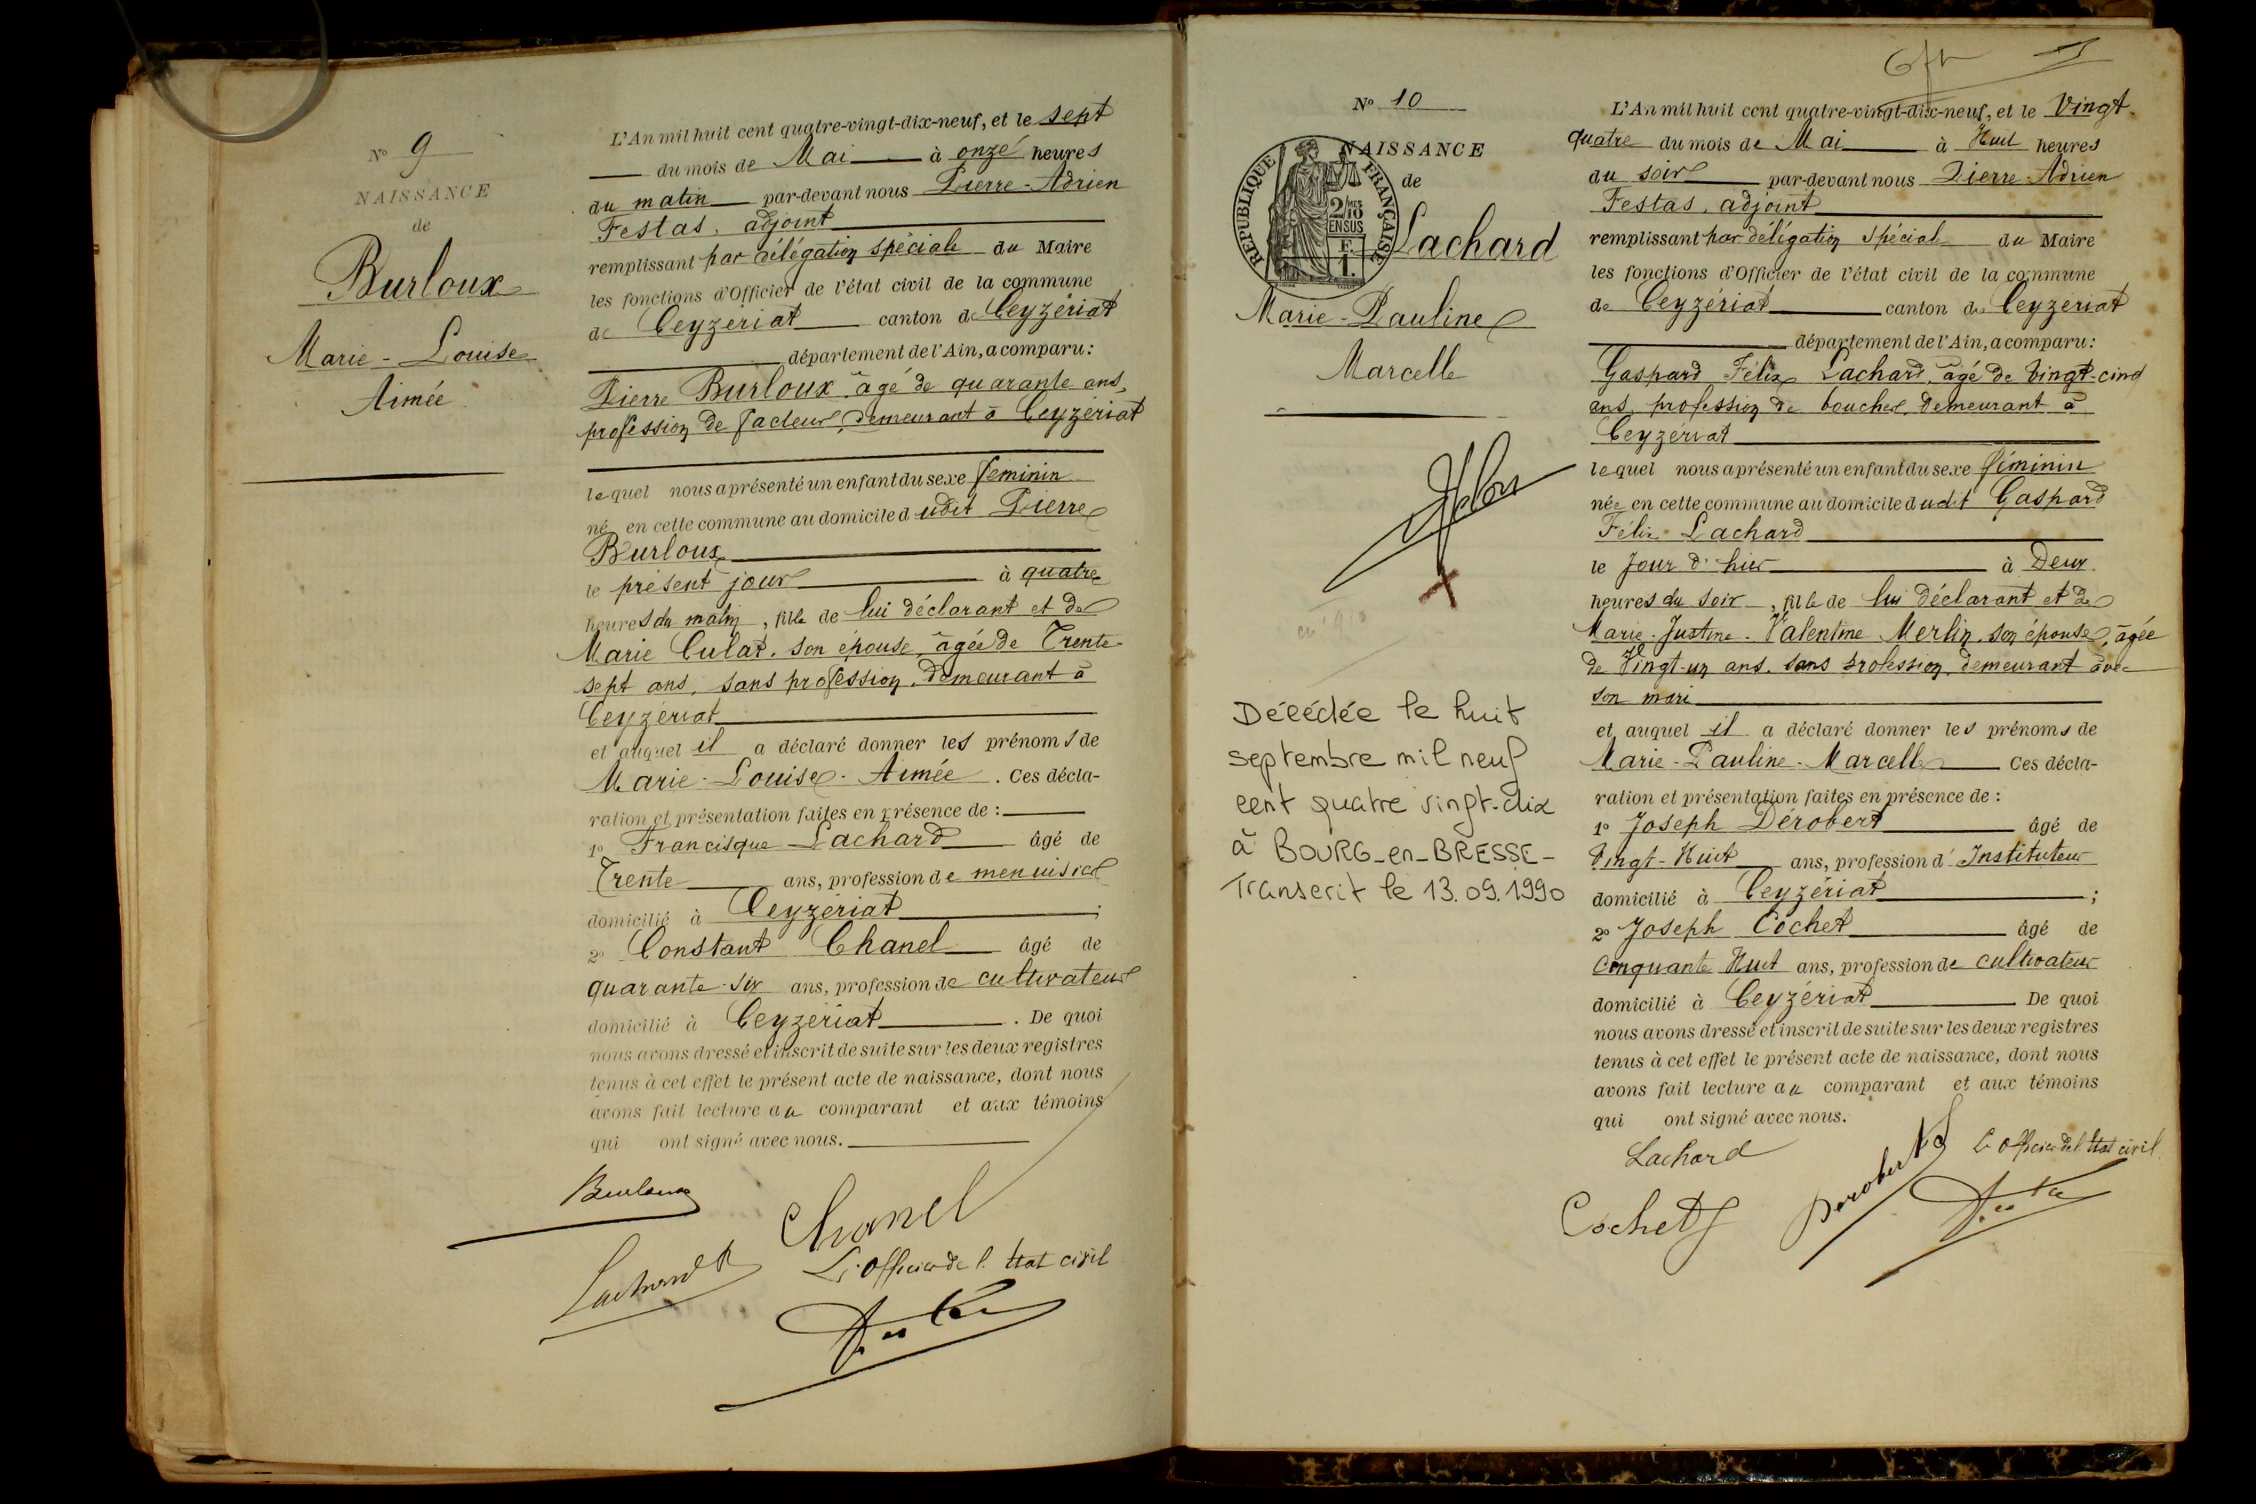 Nº 9
NAISSANCE
de
Burloux
Marie - Louise
Aimée
L'An mil huit cent quatre-vingt-dix-neuf, et le sept
du mois de Mai à onze heures
du matin par-devant nous Pierre-Adrien
Festas, adjoint
remplissant par délégation spéciale du Maire
les fonctions d'Officier de l'état civil de la commune
de Ceyzériat canton de Ceyzériat
département de l'Ain, a comparu:
Pierre Burloux âgé de quarante ans,
profession de facteur, demeurant à Ceyzériat
lequel nous a présenté un enfant du sexe féminin
né en cette commune au domicile dudit Pierre
Burloux
le présent jour à quatre
heures du matin, fille de lui déclarant et de
Marie Culat, son épouse, âgée de Trente-
sept ans, sans profession, demeurant à
Ceyzériat
et auquel il a déclaré donner les prénoms de
Marie - Louise - Aimée. Ces décla-
ration et présentation faites en présence de :
1º Francisque Lachard âgé de
Trente ans, profession de menuisier
domicilié à Ceyzériat ;
2º Constant Chanel âgé de
quarante-six ans, profession de cultivateur
domicilié à Ceyzériat. De quoi
nous avons dressé et inscrit de suite sur les deux registres
tenus à cet effet le présent acte de naissance, dont nous
avons fait lecture au comparant et aux témoins
qui ont signé avec nous.
Burloux
Chanel
Lachard
L'officier de l'état civil
Nº 10
NAISSANCE
de
REPUBLIQUE FRANÇAISE
2/10 EN SUS
F.
1.
Lachard
Marie - Pauline
Marcelle
Décédée le huit
septembre mil neuf
cent quatre vingt-dix
à BOURG-en-BRESSE-
Transcrit le 13.09.1990
L'An mil huit cent quatre-vingt-dix-neuf, et le Vingt-
quatre du mois de Mai à Huit heures
du soir par-devant nous Pierre-Adrien
Festas, adjoint
remplissant par délégation spécial du Maire
les fonctions d'Officier de l'état civil de la commune
de Ceyzériat canton de Ceyzeriat
département de l'Ain, a comparu:
Gaspard Félix Lachard, âgé de Vingt-cinq
ans, profession de boucher, demeurant à
Ceyzériat
lequel nous a présenté un enfant du sexe féminin
née en cette commune au domicile dudit Gaspard
Félix Lachard
le Jour d'hier à Deux
heures du soir, fille de lui déclarant et de
Marie-Justine-Valentine Merlin, son épouse, âgée
de Vingt-un ans, sans profession, demeurant avec
son mari
et auquel il a déclaré donner les prénoms de
Marie-Pauline-Marcelle Ces décla-
ration et présentation faites en présence de :
1º Joseph Dérobert âgé de
Vingt-Huit ans, profession d'Instituteur
domicilié à Ceyzériat ;
2º Joseph Cochet âgé de
Cinquante Huit ans, profession de cultivateur
domicilié à Ceyzériat De quoi
nous avons dressé et inscrit de suite sur les deux registres
tenus à cet effet le présent acte de naissance, dont nous
avons fait lecture au comparant et aux témoins
qui ont signé avec nous.
Lachard
Derobert
L'officier de l'état civil
Cochet